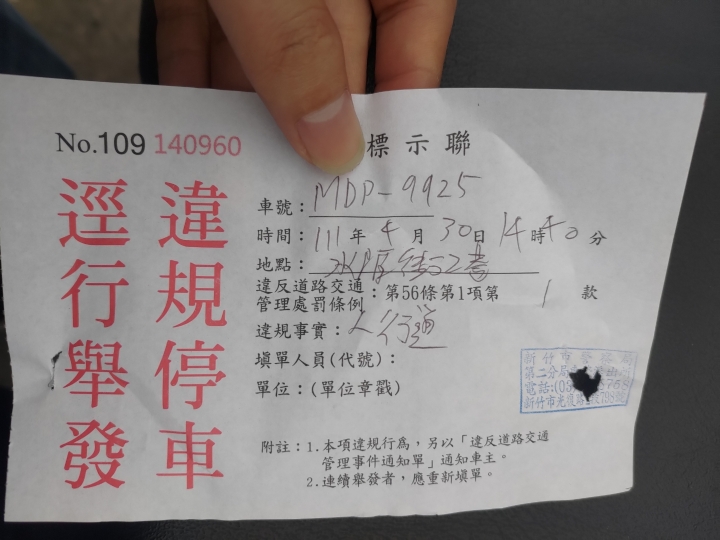 No.109 140960
標示聯
違規停車
逕行舉發
車號：MDP-9925
時間：111年4月30日14時40分
地點：水源街72巷
違反道路交通
管理處罰條例：第56條第1項第1款
違規事實：人行道
填單人員(代號)：
單位：(單位章戳)
新竹市警察局
第二分局
電話:(03
新竹市光復路
附註：1.本項違規行為，另以「違反道路交通
管理事件通知單」通知車主。
2.連續舉發者，應重新填單。